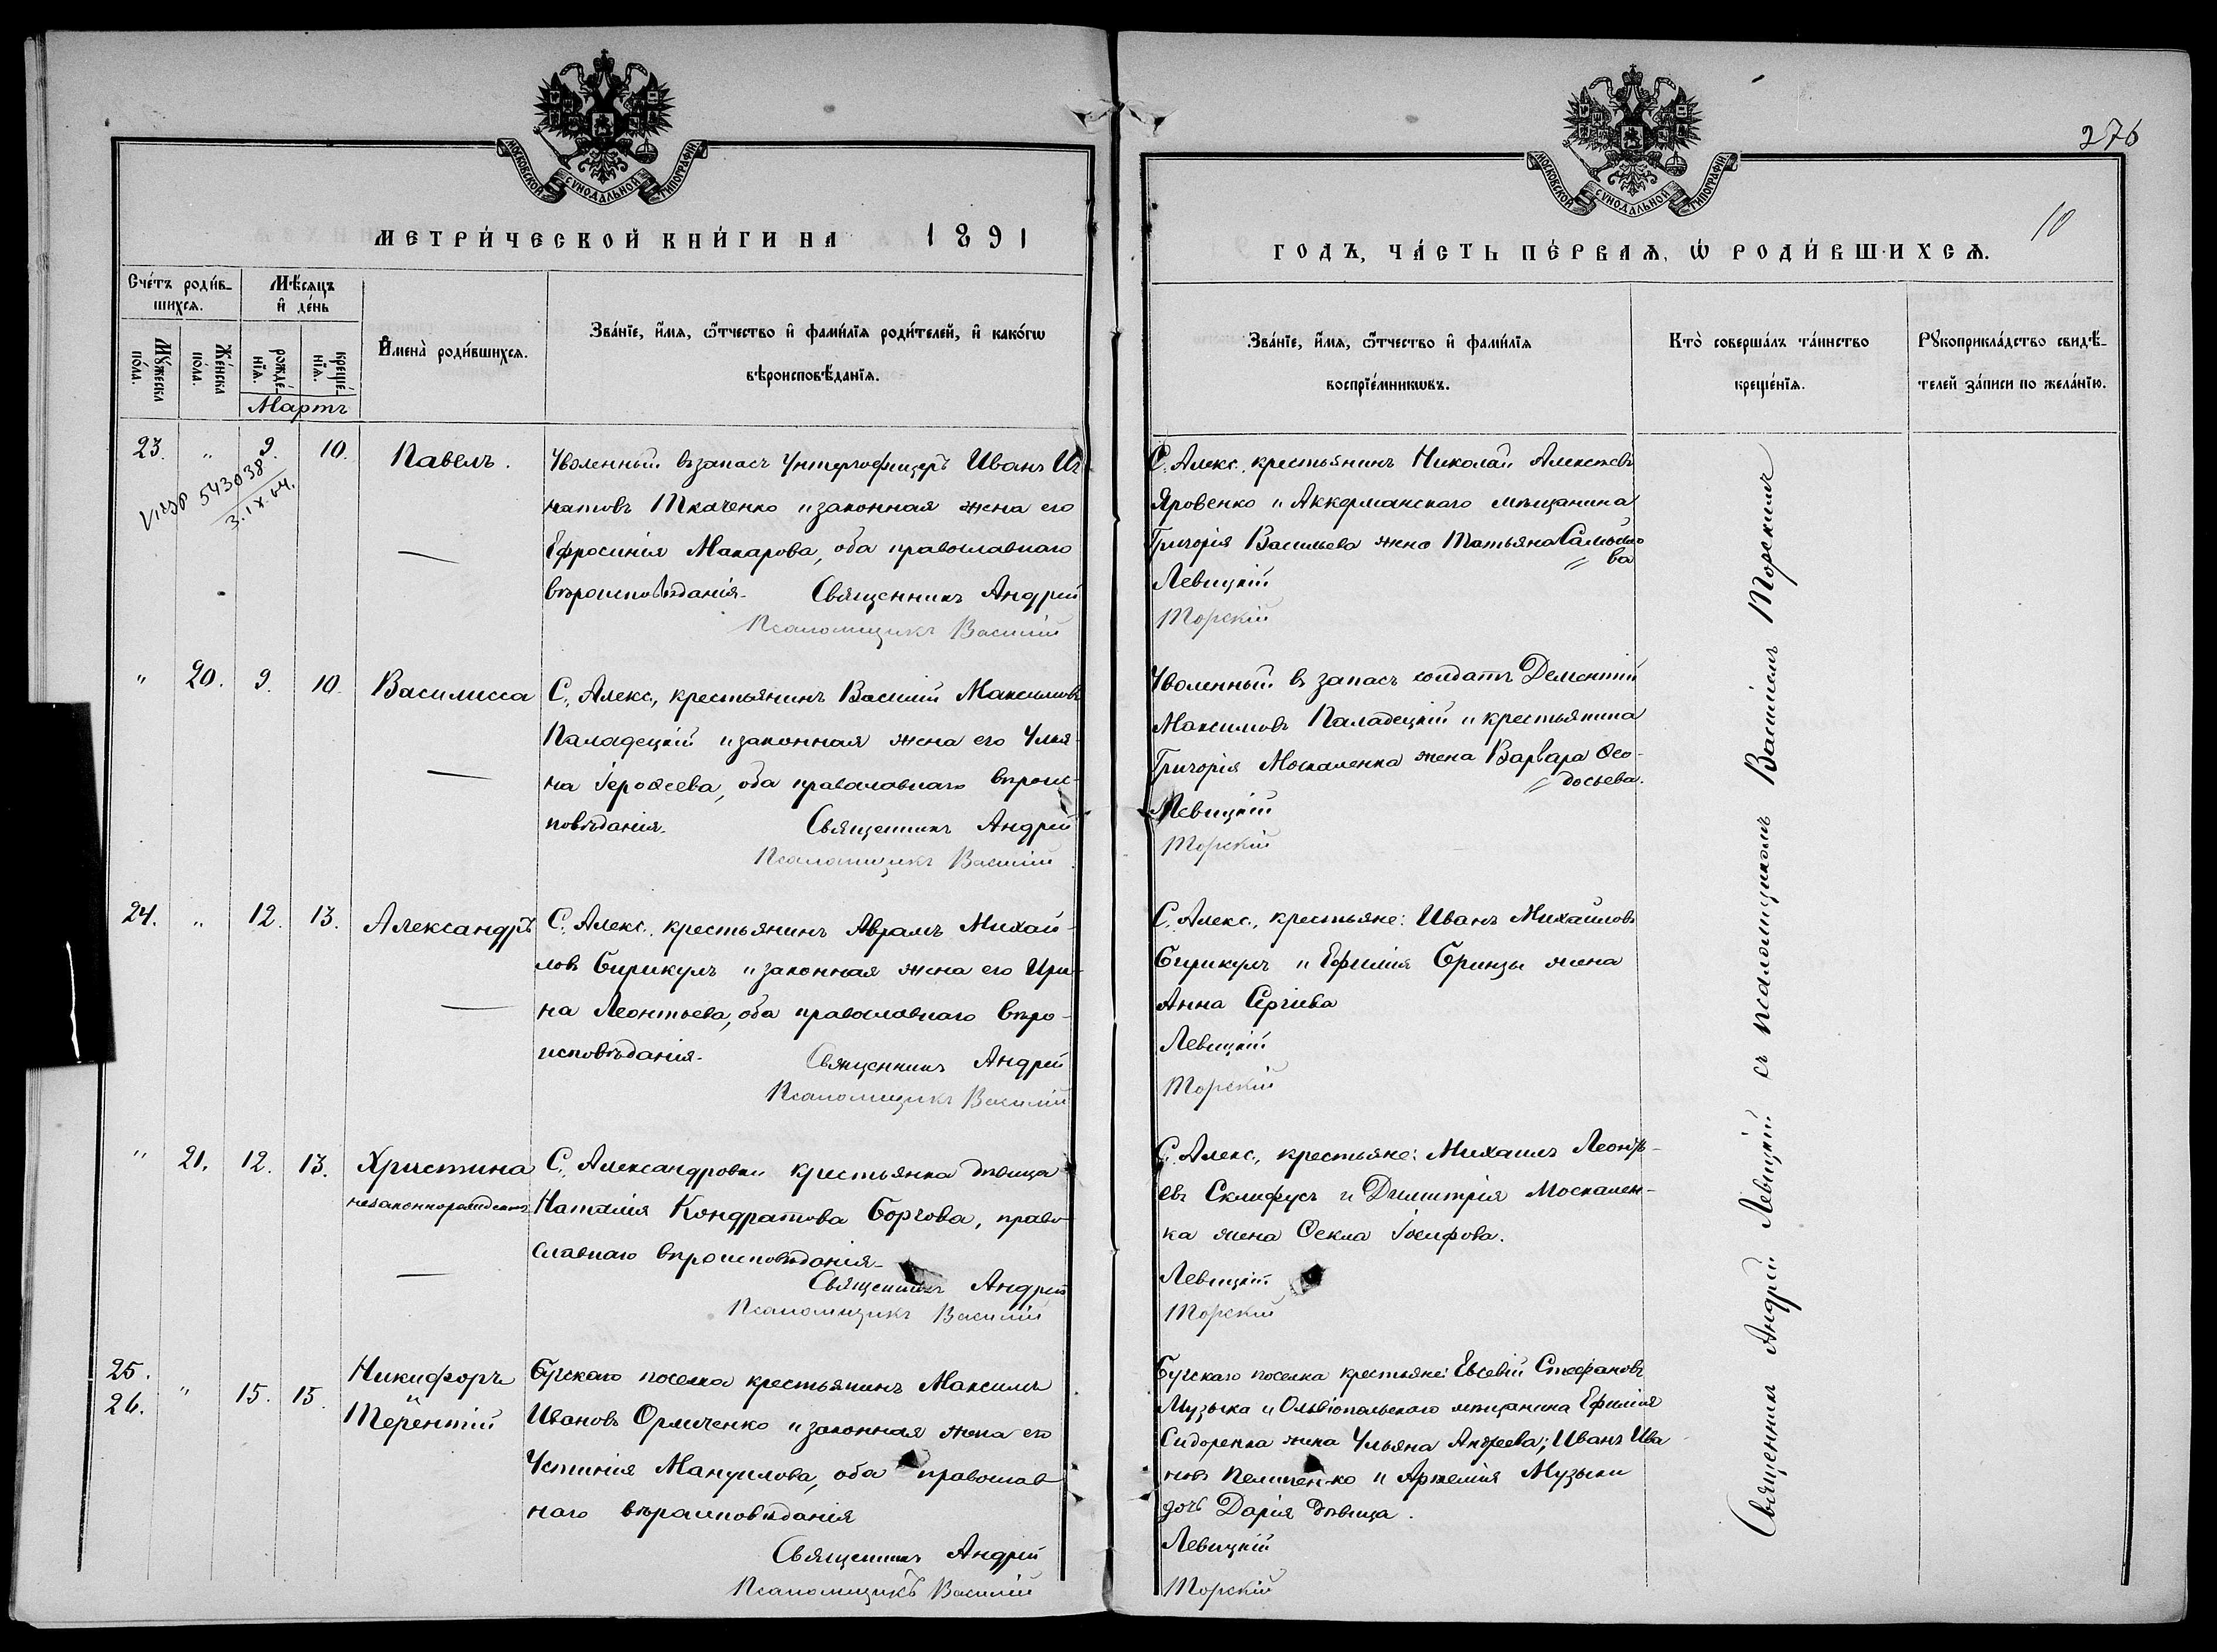 МОСКОВСКОЙ СѴНОДАЛЬНОЙ ТИПОГРАФІИ
МЕТРИ́ЧЕСКОЙ КНИ́ГИ НА 1891
Сче́тъ роди́в-
шихсѧ.
Мѣ́сѧцъ
и҆ де́нь
Мꙋ́жеска
по́ла.
Же́нска
по́ла.
рожде́-
нїѧ.
креще́-
нїѧ.
Мартъ
И҆мена̀ роди́вшихсѧ.
Зва́нїе, и҆́мѧ, ѻ҆́тчество и҆ фами́лїѧ роди́телей, и҆ како́гѡ
вѣроисповѣ́данїѧ.
23. " 9. 10. Павелъ.
543038
3.IX.04.
Уволенный въ запасъ Унтерофицеръ Иванъ Иг
натовъ Ткаченко и законная жена его
Ефросинія Макарова, оба православнаго
вѣроисповѣданія. Священникъ Андрей
Псаломщикъ Василій
" 20. 9. 10. Василисса
С. Алекс., крестьянинъ Василій Максимовъ
Паладецкій и законная жена его Улья-
на Іероѳеева, оба православнаго вѣроис-
повѣданія. Священникъ Андрей
Псаломщикъ Василій
24. " 12. 13. Александръ
С. Алекс. крестьянинъ Аврамъ Михай-
ловъ Бирикулъ и законная жена его Ири-
на Леонтьева, оба православнаго вѣро-
исповѣданія. Священникъ Андрей
Псаломщикъ Василій
" 21. 12. 13. Христина
незаконнорожденная
С. Александровки крестьянка дѣвица
Наталія Кондратова Боргова, право-
славнаго вѣроисповѣданія.
Священникъ Андрей
Псаломщикъ Василій
25.
26. " 15. 15. Никифоръ
и
Терентій
Бугскаго поселка крестьянинъ Максимъ
Ивановъ Ормченко и законная жена его
Устинія Мануилова, оба православ
наго вѣроисповѣданія
Священникъ Андрей
Псаломщикъ Василій
276
МОСКОВСКОЙ СѴНОДАЛЬНОЙ ТИПОГРАФІИ
10
ГОДЪ, ЧА́СТЬ ПЕ́РВАѦ, Ѡ҆ РОДИ́ВШИХСѦ.
Зва́нїе, и҆́мѧ, ѻ҆́тчество и҆ фами́лїѧ
воспрїе́мникѡвъ.
Кто̀ соверша́лъ та́инство
креще́нїѧ.
Рꙋкоприкла́дство свидѣ́-
телей за́писи по жела́нїю.
С. Алекс. крестьянинъ Николай Алексѣевъ
Яровенко и Аккерманскаго мѣщанина
Григорія Васильева жена Татьяна Самойло
ва
Левицкій
Торскій
Уволенный въ запасъ солдатъ Дементій
Максимовъ Паладецкій и крестьянина
Григорія Москаленка жена Варвара Ѳео-
досьева.
Левицкій
Торскій
С. Алекс., крестьяне: Иванъ Михайловъ
Бирикулъ и Ефимія Бринзы жена
Анна Сергіева
Левицкій
Торскій
С. Алекс., крестьяне: Михаилъ Леонть-
евъ Склифусъ и Димитрія Москален-
ка жена Ѳекла Іосифова.
Левицкій
Торскій
Бугскаго поселка крестьяне: Евсевій Стефановъ
Музыка и Ольвіопольскаго мѣщанина Ефимія
Сидоренка жена Ульяна Андреева; Иванъ Ива
новъ Пелипенко и Артемія Музыки
дочь Дарія дѣвица.
Левицкій
Торскій
Священникъ Андрей Левицкій съ псаломщикомъ Василіемъ Торскимъ